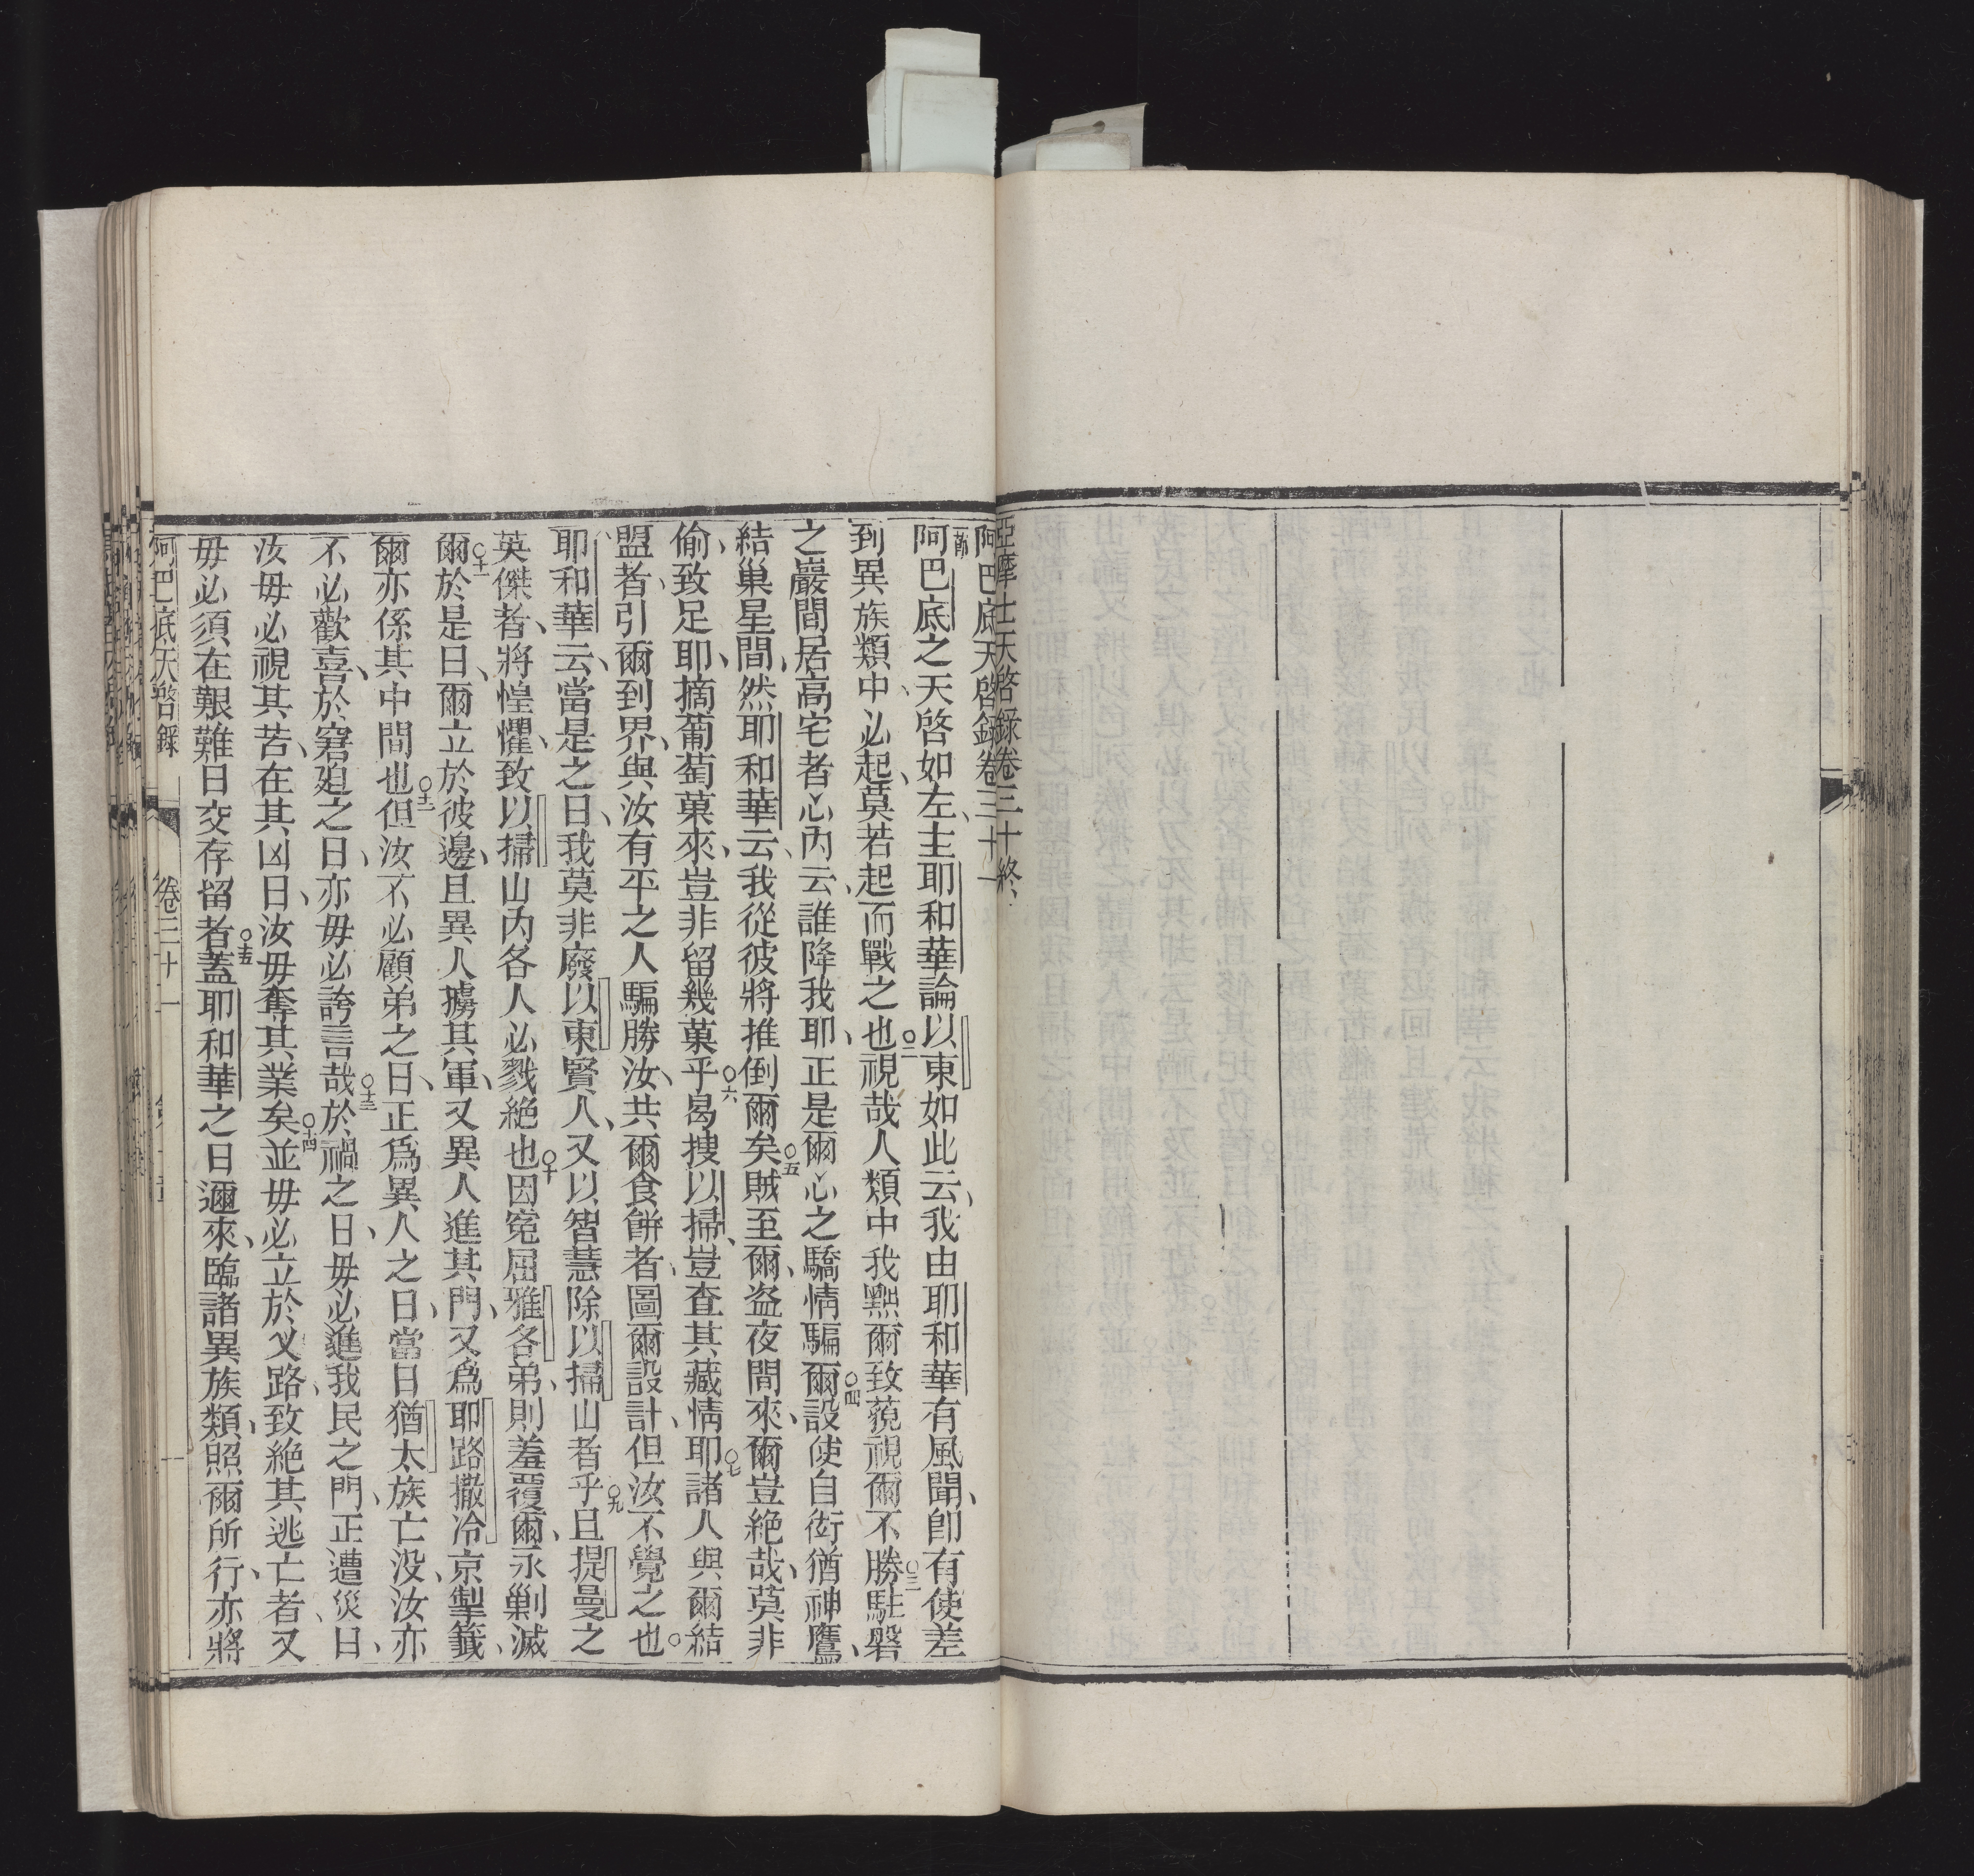 亞摩士天啓錄卷三十終、
阿巴底天啓錄卷三十一
首節
阿巴底之天啓如左、主耶和華論以東如此云、我由耶和華有風聞、卽有使差
到異族類中、必起、莫若起而戰之也○二視哉人類中我㸃爾致藐視爾不勝○三駐磐
之巖間居高宅者心內云、誰降我耶、正是爾心之驕情騙爾○四設使自衒猶神鷹、
結巢星間、然耶和華云、我從彼將推倒爾矣○五賊至爾、盜夜間來、爾豈絶哉、莫非
偷、致足耶、摘葡萄菓來、豈非留幾菓乎○六曷搜以掃、豈查其藏情耶○七諸人與爾結
盟者、引爾到界、與汝有平之人騙勝汝、共爾食餅者、圖爾設計、但汝不覺之也○
耶和華云、當是之日、我莫非廢以東賢人、又以智慧除以掃山者乎○九且提曼之
英傑者、將惶懼、致以掃山內各人必戮絶也○十因寃屈雅各弟、則羞覆爾、永剿滅
爾○十一於是日、爾立於彼邊、且異人擄其軍、又異人進其門、又爲耶路撒冷京掣籤、
爾亦係其中間也○十二但汝不必顧弟之日、正爲異人之日、當日猶太族亡没、汝亦
不必歡喜、於窘廹之日、亦毋必誇言哉○十三於禍之日、毋必進我民之門、正遭災日、
汝毋必視其苦、在其凶日、汝毋奪其業矣○十四並毋必立於叉路、致絶其逃亡者、又
毋必須在艱難日交存留者○十五蓋耶和華之日邇來、臨諸異族類、照爾所行、亦將
阿巴底天啓錄 卷三十一